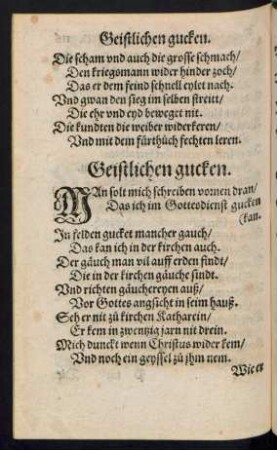 Geistlichen gucken.
Die scham vnd auch die grosse schmach/
Den kriegsmann wider hinder zoch/
Das er dem feind schnell eylet nach.
Vnd gwan den sieg im selben streitt/
Die ehr vnd eyd beweget nit.
Die kundten die weiber widerkeren/
Vnd mit dem fürthüch fechten leren.
Geistlichen gucken.
MAn solt mich schreiben vornen dran/
Das ich im Gottesdienst gucken
(kan.
In felden gucket mancher gauch/
Das kan ich in der kirchen auch.
Der gäuch man vil auff erden findt/
Die in der kirchen gäuche sindt.
Vnd richten gäuchereyen auß/
Vor Gottes angsicht in seim hauß.
Seh er nit zů kirchen Katharein/
Er kem in zwentzig jarn nit drein.
Mich dunckt wenn Christus wider kem/
Vnd noch ein geyssel zů jhm nem.
Wie er